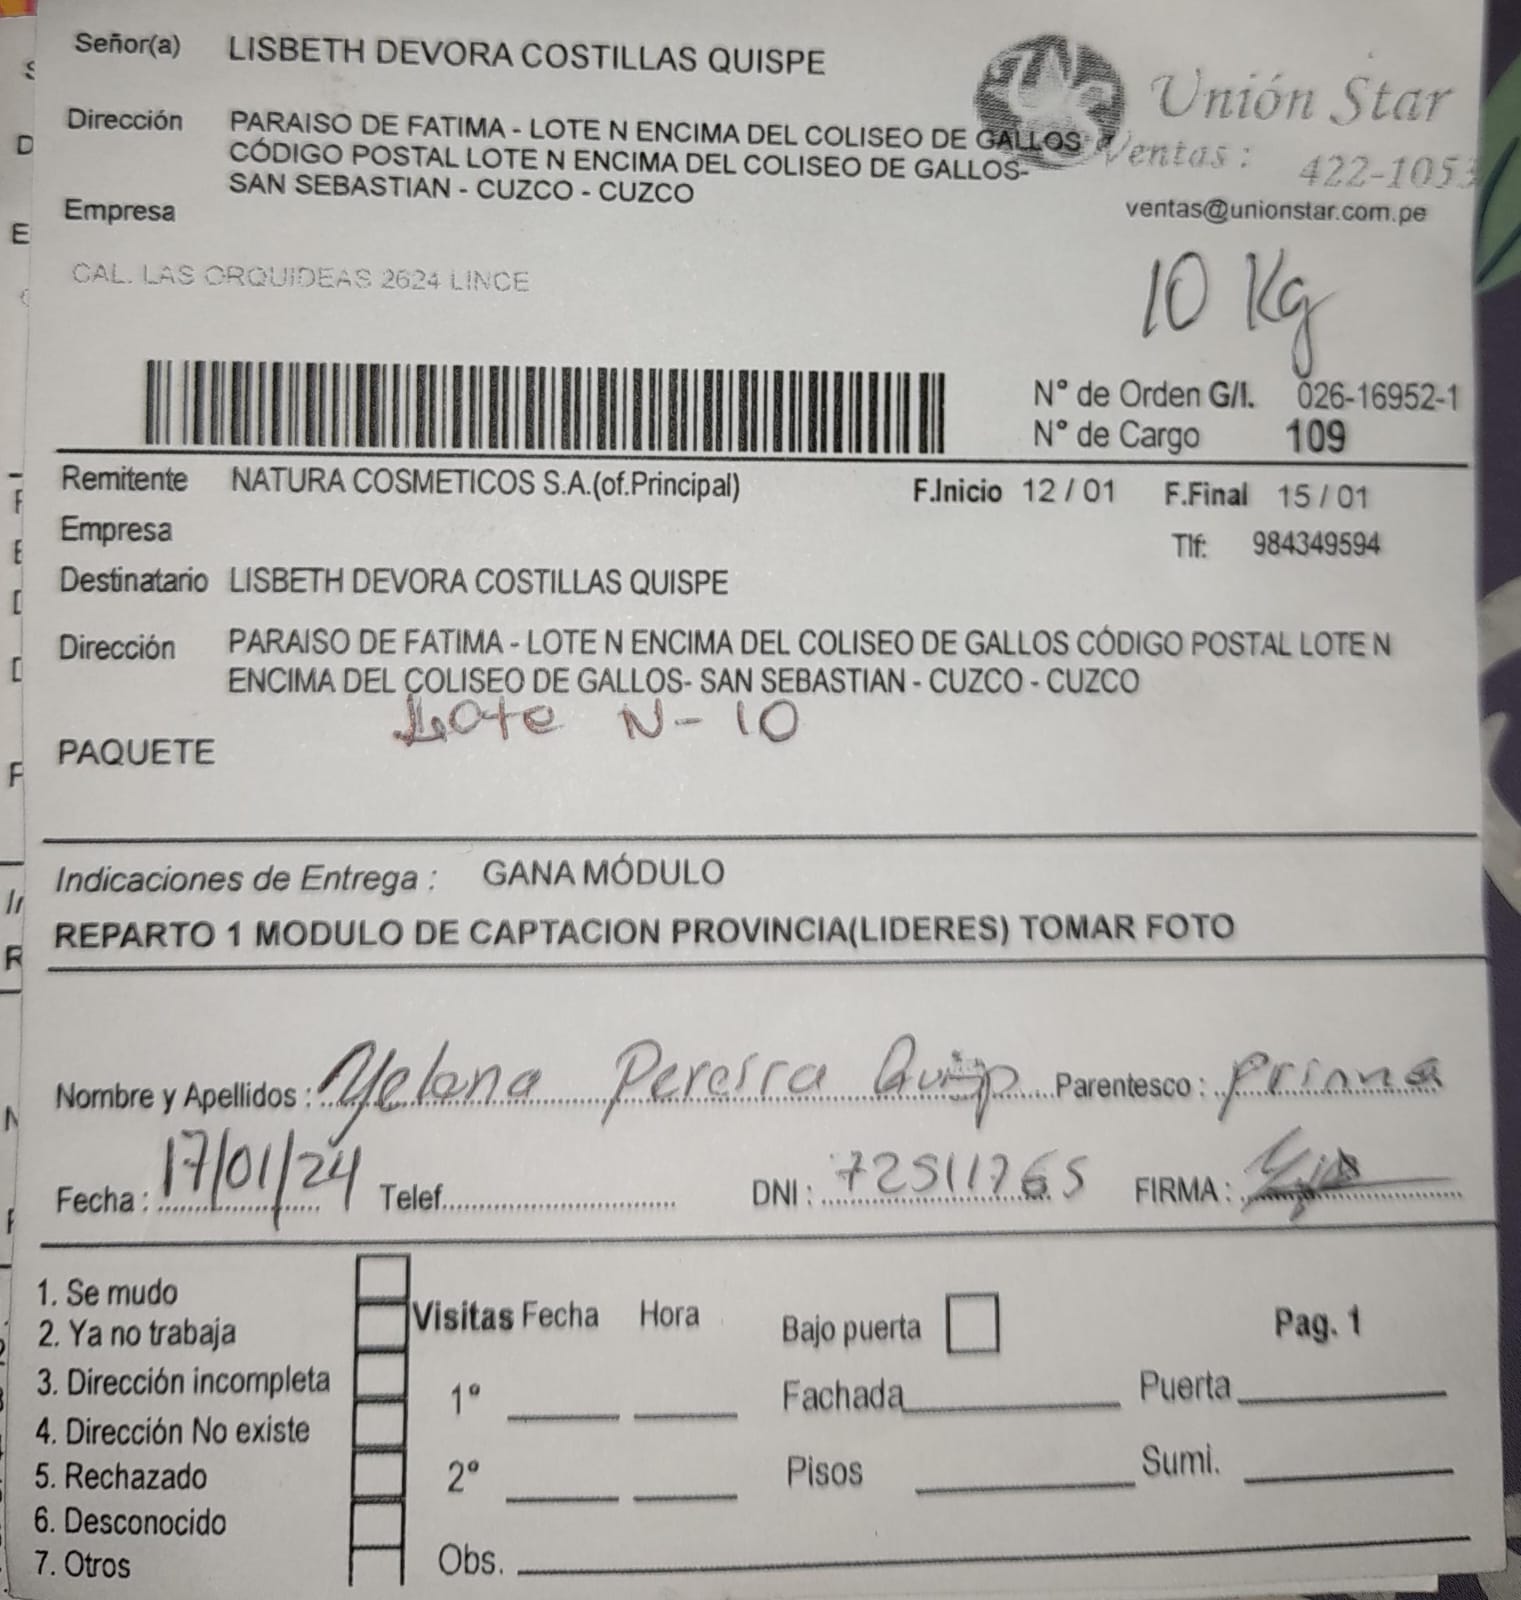 Señor(a) LISBETH DEVORA COSTILLAS QUISPE
Unión Star
Dirección PARAISO DE FATIMA - LOTE N ENCIMA DEL COLISEO DE GALLOS
CÓDIGO POSTAL LOTE N ENCIMA DEL COLISEO DE GALLOS-
SAN SEBASTIAN - CUZCO - CUZCO
Ventas : 422-1053
ventas@unionstar.com.pe
Empresa
CAL. LAS ORQUIDEAS 2624 LINCE
10 Kg
N° de Orden G/I. 026-16952-1
N° de Cargo 109
Remitente NATURA COSMETICOS S.A.(of.Principal) F.Inicio 12 / 01 F.Final 15 / 01
Empresa Tlf: 984349594
Destinatario LISBETH DEVORA COSTILLAS QUISPE
Dirección PARAISO DE FATIMA - LOTE N ENCIMA DEL COLISEO DE GALLOS CÓDIGO POSTAL LOTE N
ENCIMA DEL COLISEO DE GALLOS- SAN SEBASTIAN - CUZCO - CUZCO
Lote N-10
PAQUETE
Indicaciones de Entrega : GANA MÓDULO
REPARTO 1 MODULO DE CAPTACION PROVINCIA(LIDERES) TOMAR FOTO
Nombre y Apellidos : Pereira Parentesco : prima
Fecha : 17/01/24 Telef. DNI : 72511765 FIRMA :
1. Se mudo
2. Ya no trabaja
3. Dirección incompleta
4. Dirección No existe
5. Rechazado
6. Desconocido
7. Otros
Visitas Fecha Hora
1º
2º
Obs.
Bajo puerta Pag. 1
Fachada Puerta
Pisos Sumi.